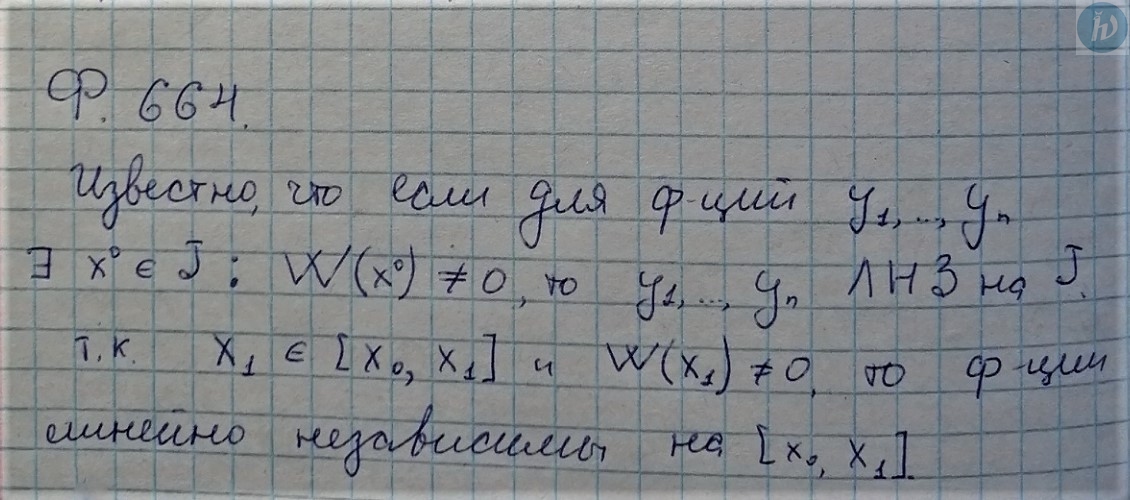 Ф. 664.
Известно, что если для ф-ций y₁,..., yₙ
∃ x⁰ ∈ J : W(x⁰) ≠ 0, то y₁,..., yₙ ЛНЗ на J.
т.к. x₁ ∈ [x₀, x₁] и W(x₁) ≠ 0, то ф-ции
линейно независимы на [x₀, x₁].